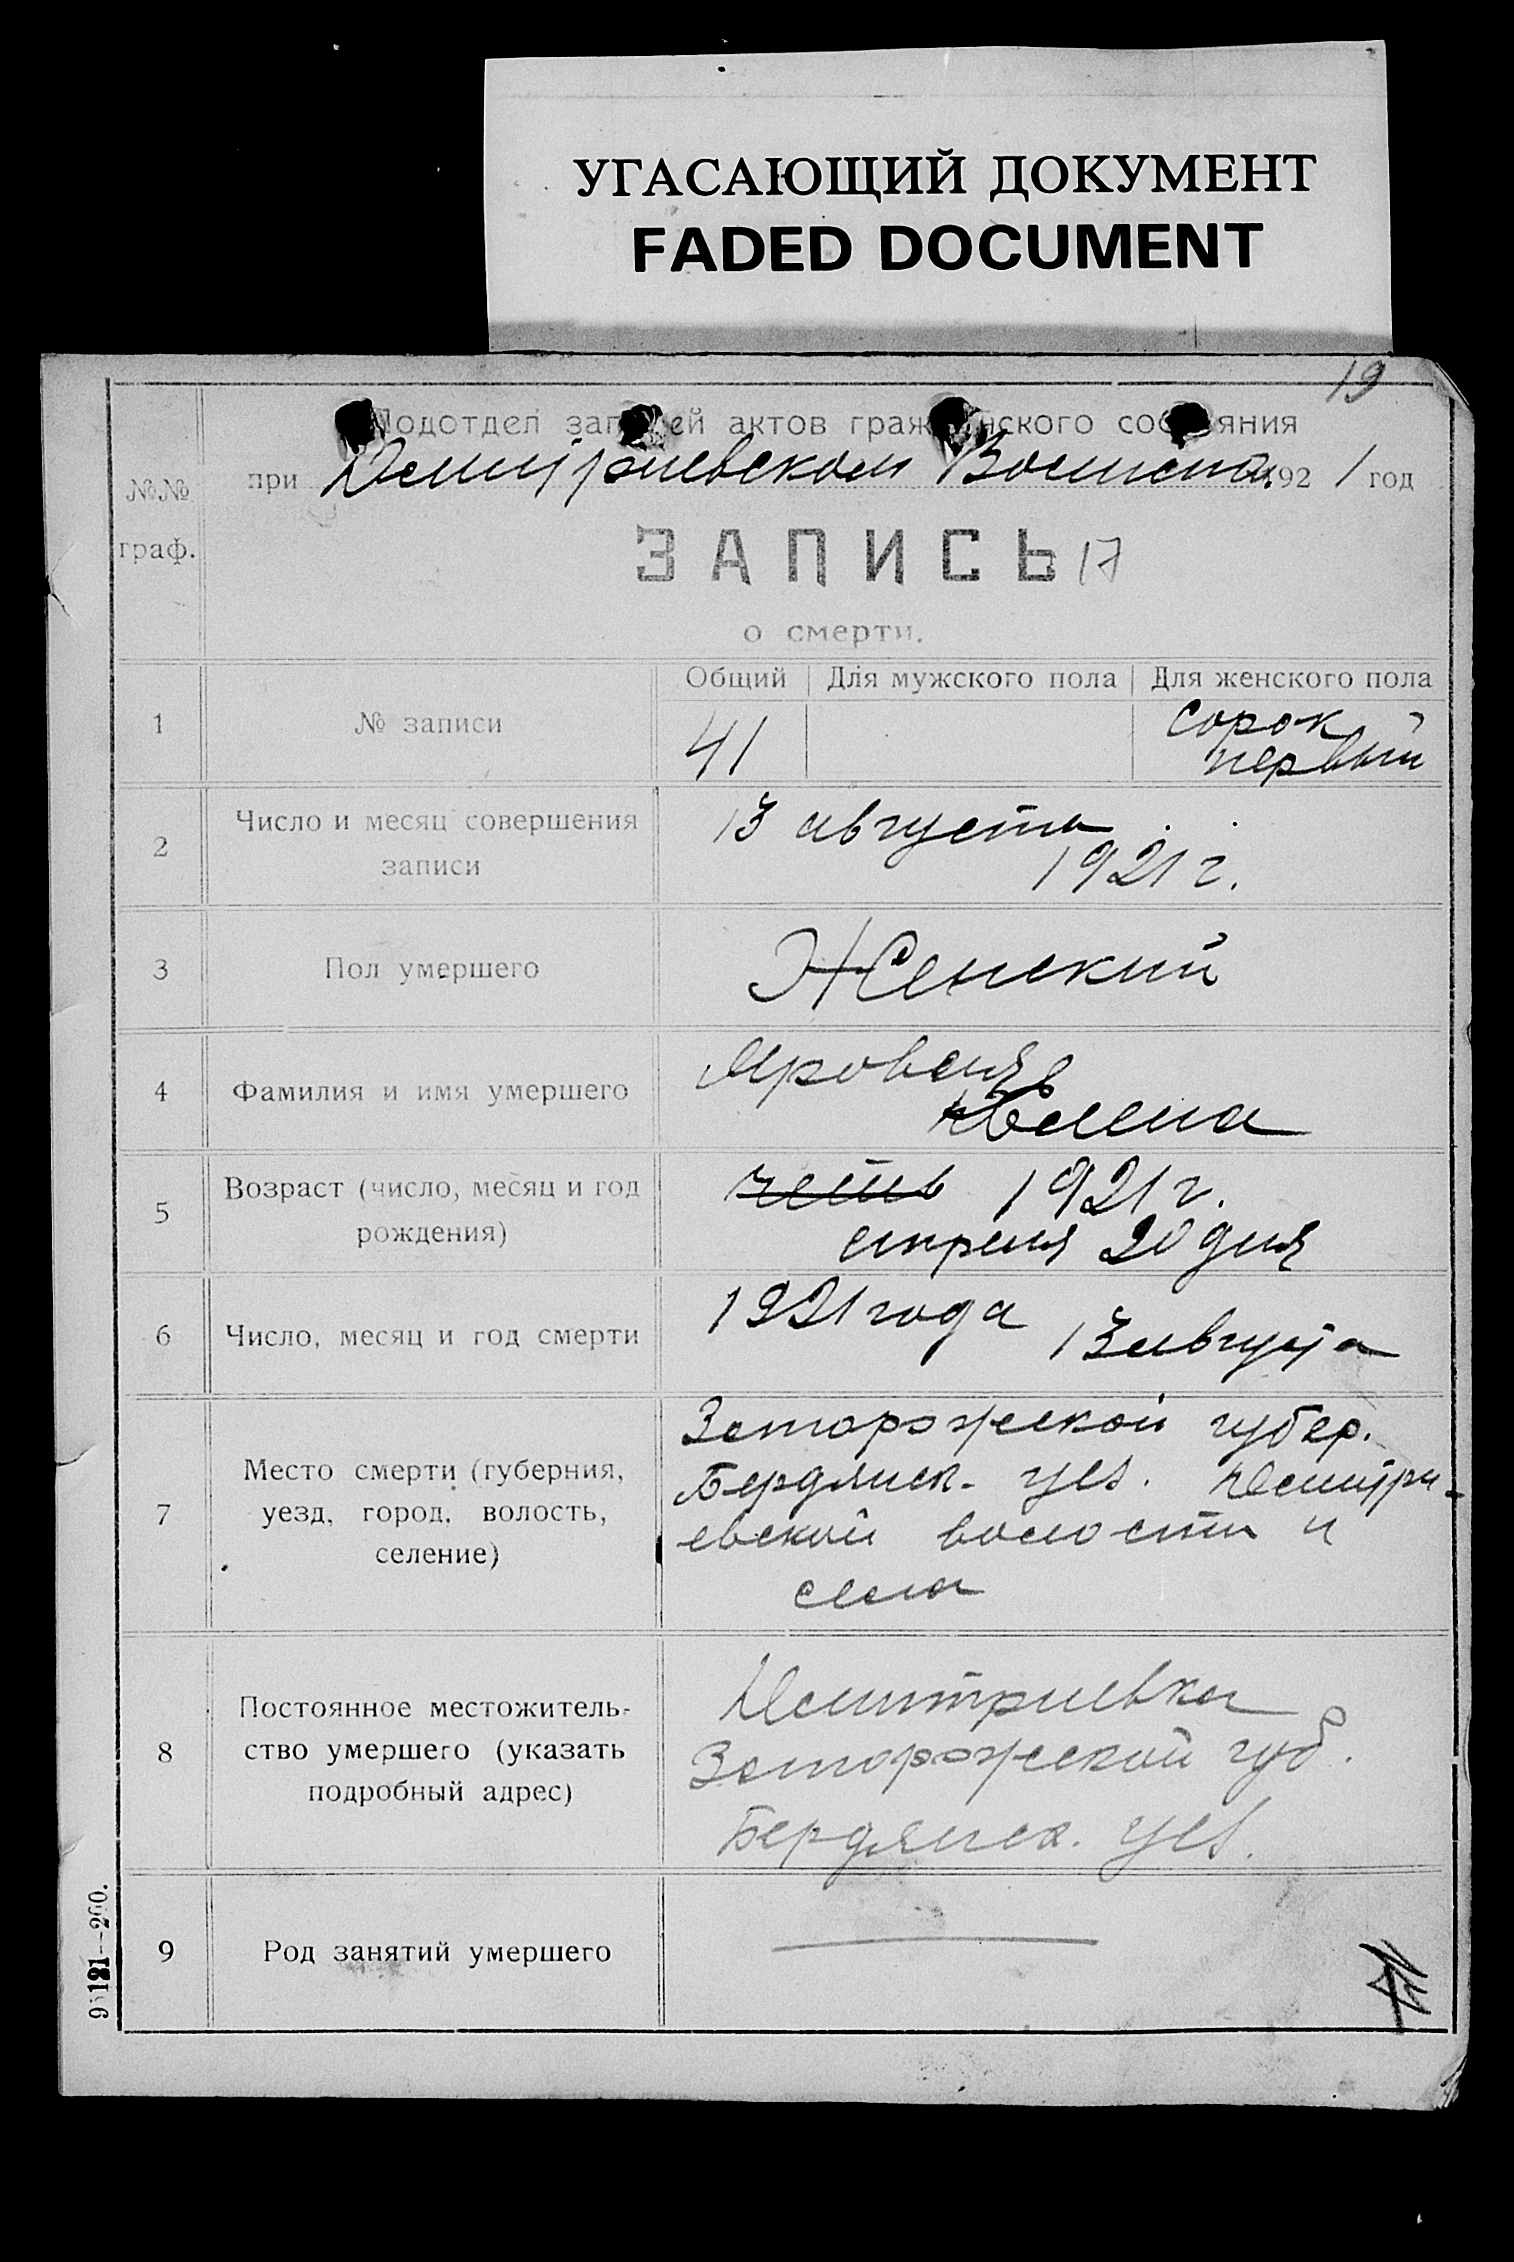 УГАСАЮЩИЙ ДОКУМЕНТ
FADED DOCUMENT
19
Подотдел записей актов гражданского состояния
№№ граф.
при Демитриевском 1921 год
ЗАПИСЬ 17
о смерти.
Общий Для мужского пола Для женского пола
1 № записи 41 сорок
первый
2 Число и месяц совершения
записи
13 августа
1921 г.
3 Пол умершего Женский
4 Фамилия и имя умершего
Елена
5 Возраст (число, месяц и год
рождения)
1921 г.
апреля 20 дня
6 Число, месяц и год смерти 1921 года 13 августа
7 Место смерти (губерния,
уезд, город, волость,
селение)
Запорожской губер.
Бердянск. уез. Демитри-
евской волости и
села
8 Постоянное местожитель-
ство умершего (указать
подробный адрес)
Демитриевка
Запорожской губ.
Бердянск. уез.
9 Род занятий умершего